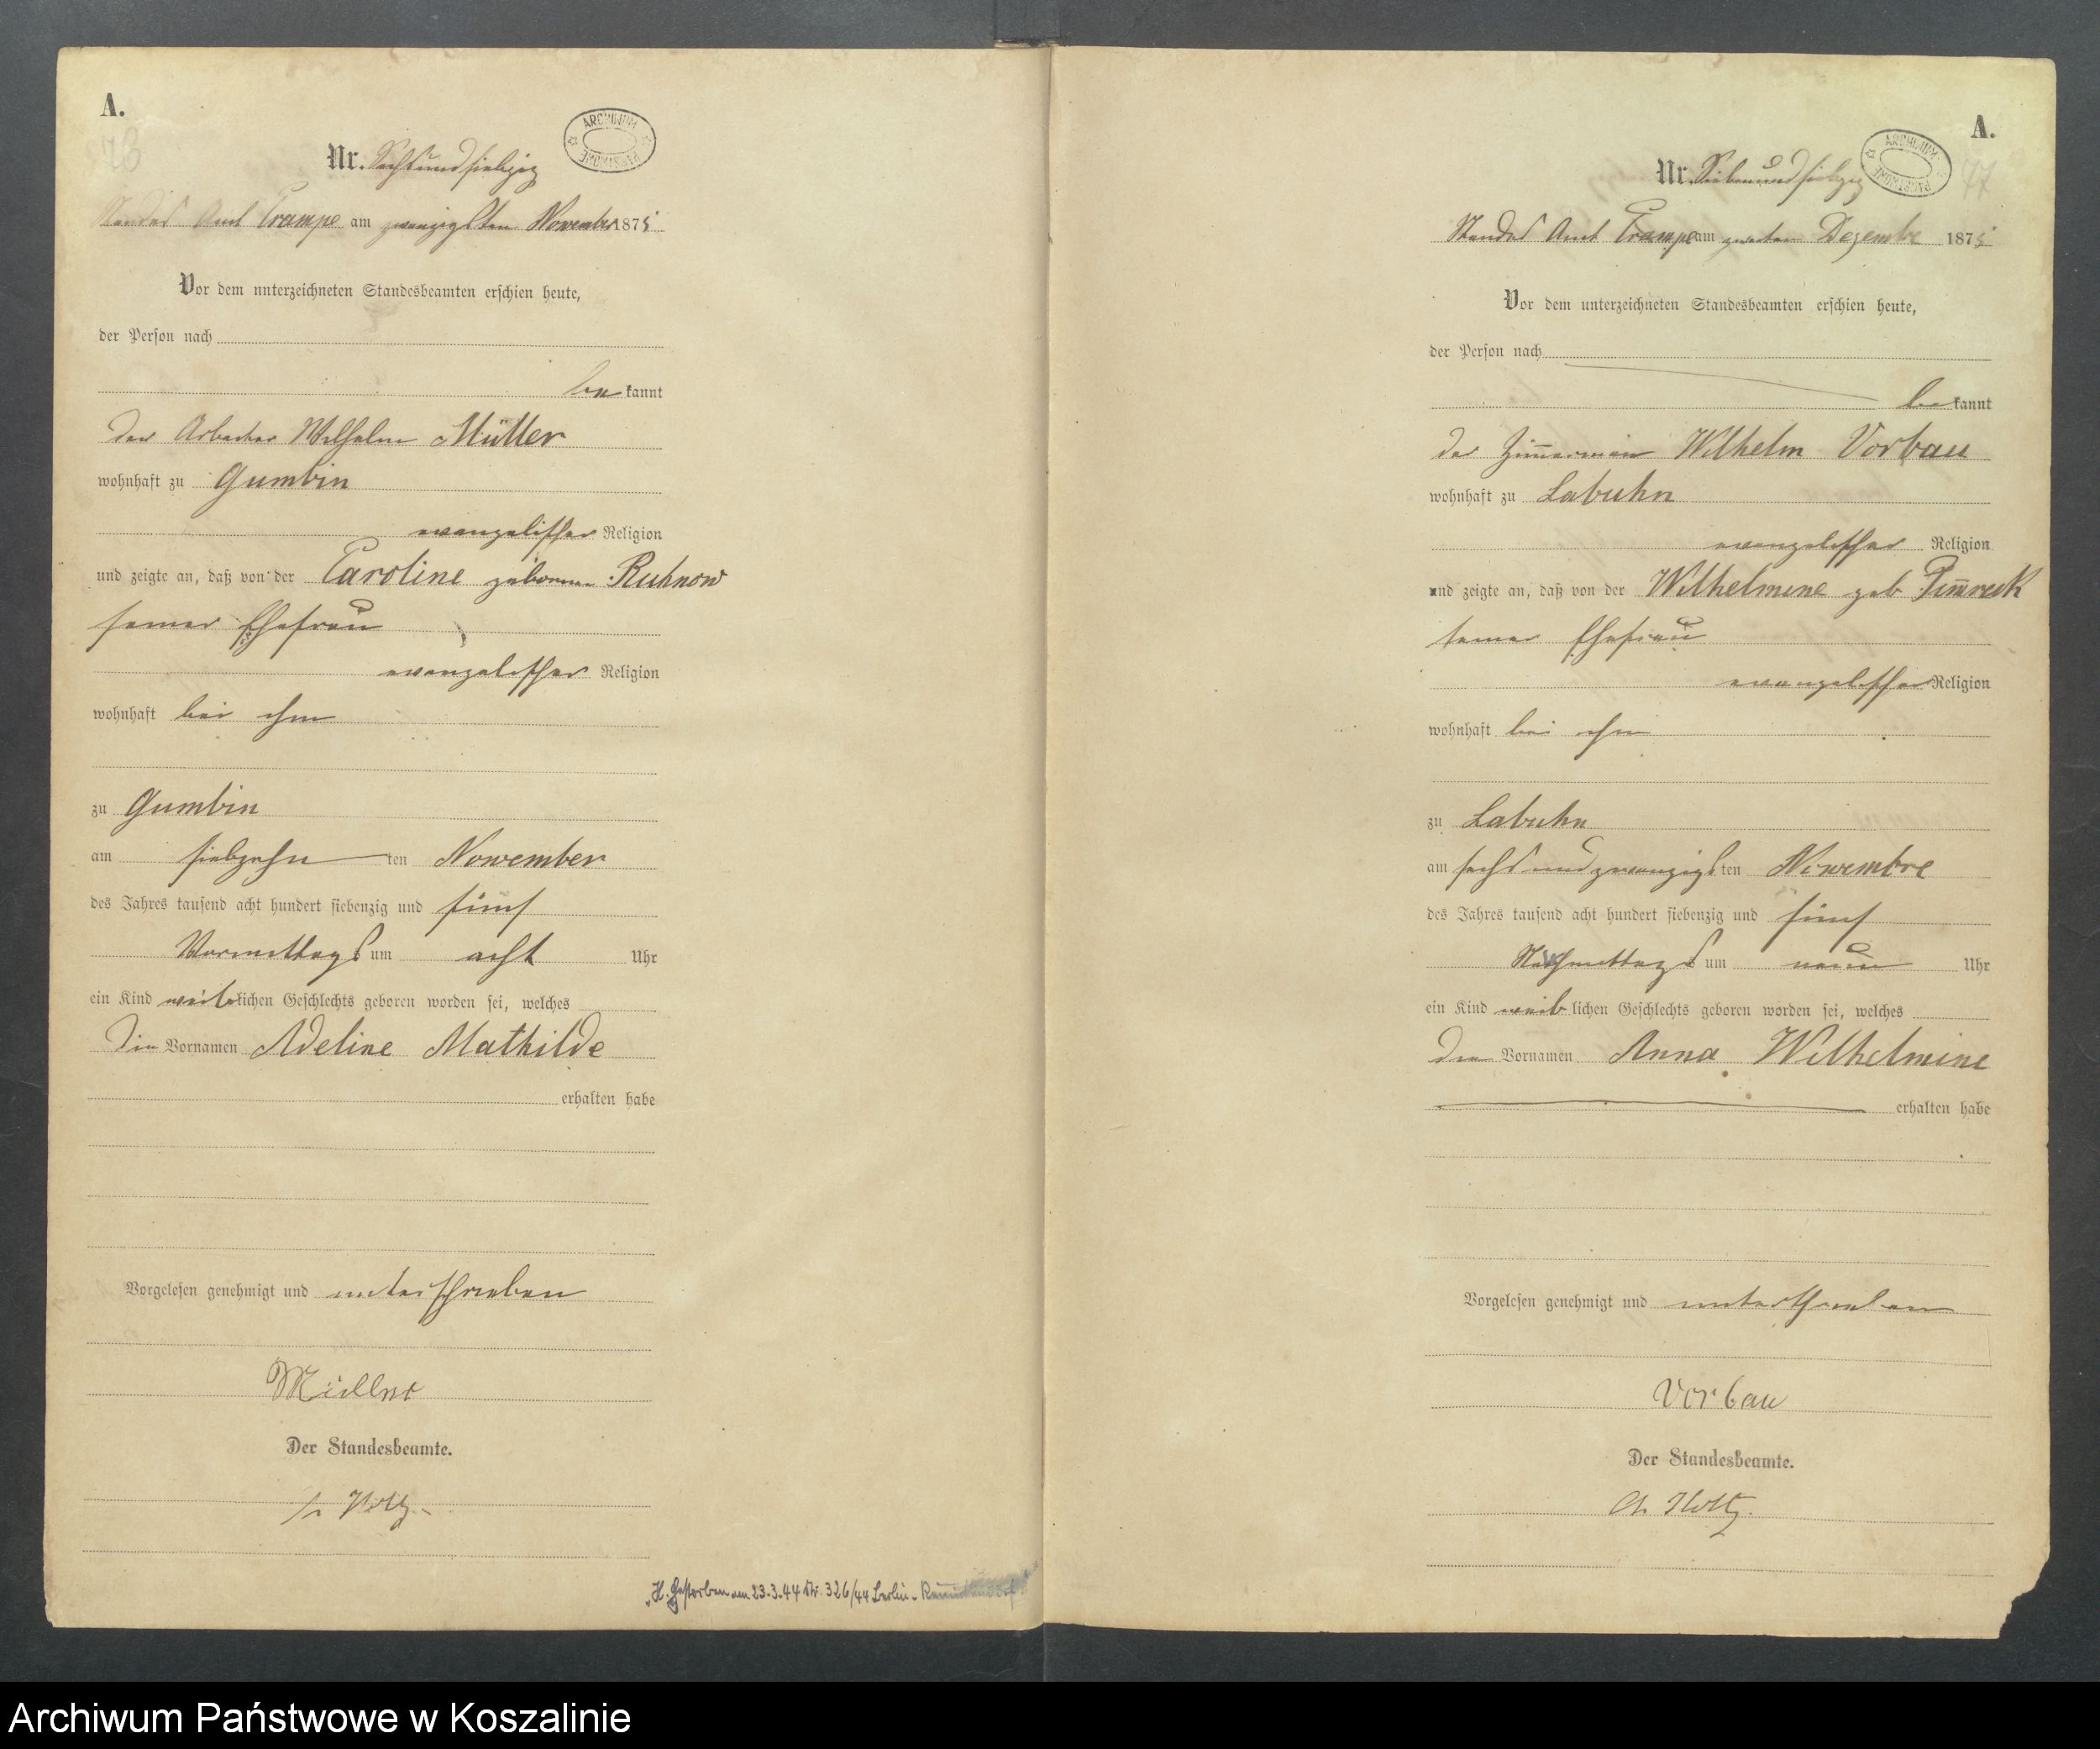 A.
76
Nr. Sechsundsiebzig
ARCHIWUM PAŃSTWOWE
Standes Amt Trampe am zwanzigsten November 1875
Vor dem unterzeichneten Standesbeamten erschien heute,
der Person nach
be kannt
der Arbeiter Wilhelm Müller
wohnhaft zu Gumbin
evangelischer Religion
und zeigte an, daß von der Caroline geborene Ruhnow
seiner Ehefrau
evangelischer Religion
wohnhaft bei ihm
zu Gumbin
am siebzehn ten Nowember
des Jahres tausend acht hundert siebenzig und fünf
Vormittags um acht Uhr
ein Kind weiblichen Geschlechts geboren worden sei, welches
die Vornamen Adeline Mathilde
erhalten habe
Vorgelesen genehmigt und unterschrieben
Müller
Der Standesbeamte.
Holtz
H. Gestorben am 23.3.44 Nr. 326/44 Berlin-
A.
77
Nr. Siebenundsiebzig
ARCHIWUM PAŃSTWOWE
Standes Amt Trampe am zweiten Dezembe 1875
Vor dem unterzeichneten Standesbeamten erschien heute,
der Person nach
be kannt
der Zimmerman Wilhelm Vorbau
wohnhaft zu Labuhn
evangelischer Religion
und zeigte an, daß von der Wilhelmine geb
seiner Ehefrau
evangelischer Religion
wohnhaft bei ihm
zu Labuhn
am sechs und zwanzigsten Nowembre
des Jahres tausend acht hundert siebenzig und fünf
Nachmittags um neun Uhr
ein Kind weiblichen Geschlechts geboren worden sei, welches
den Vornamen Anna Wilhelmine
erhalten habe
Vorgelesen genehmigt und unterschrieben
Vorbau
Der Standesbeamte.
Ch. Holtz.
Archiwum Państwowe w Koszalinie